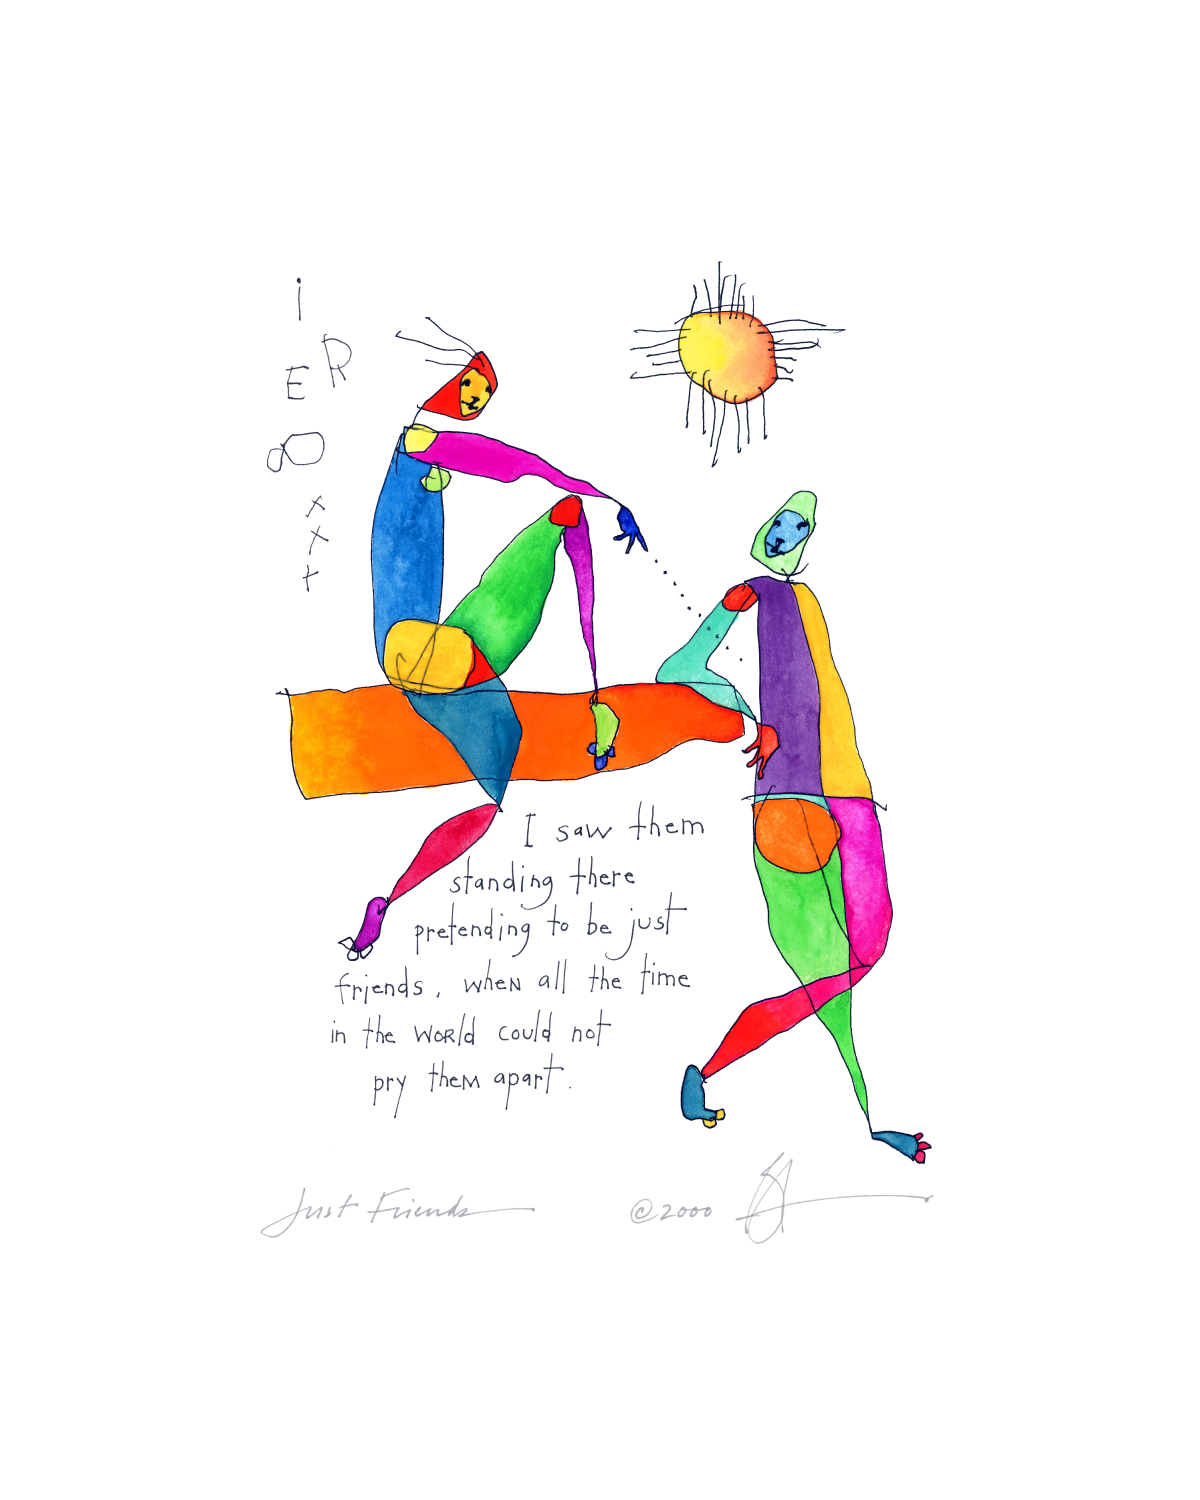 i
E R
8
x x +
I saw them
standing there
pretending to be just
friends, when all the time
in the world could not
pry them apart.
Just Friends
©2000